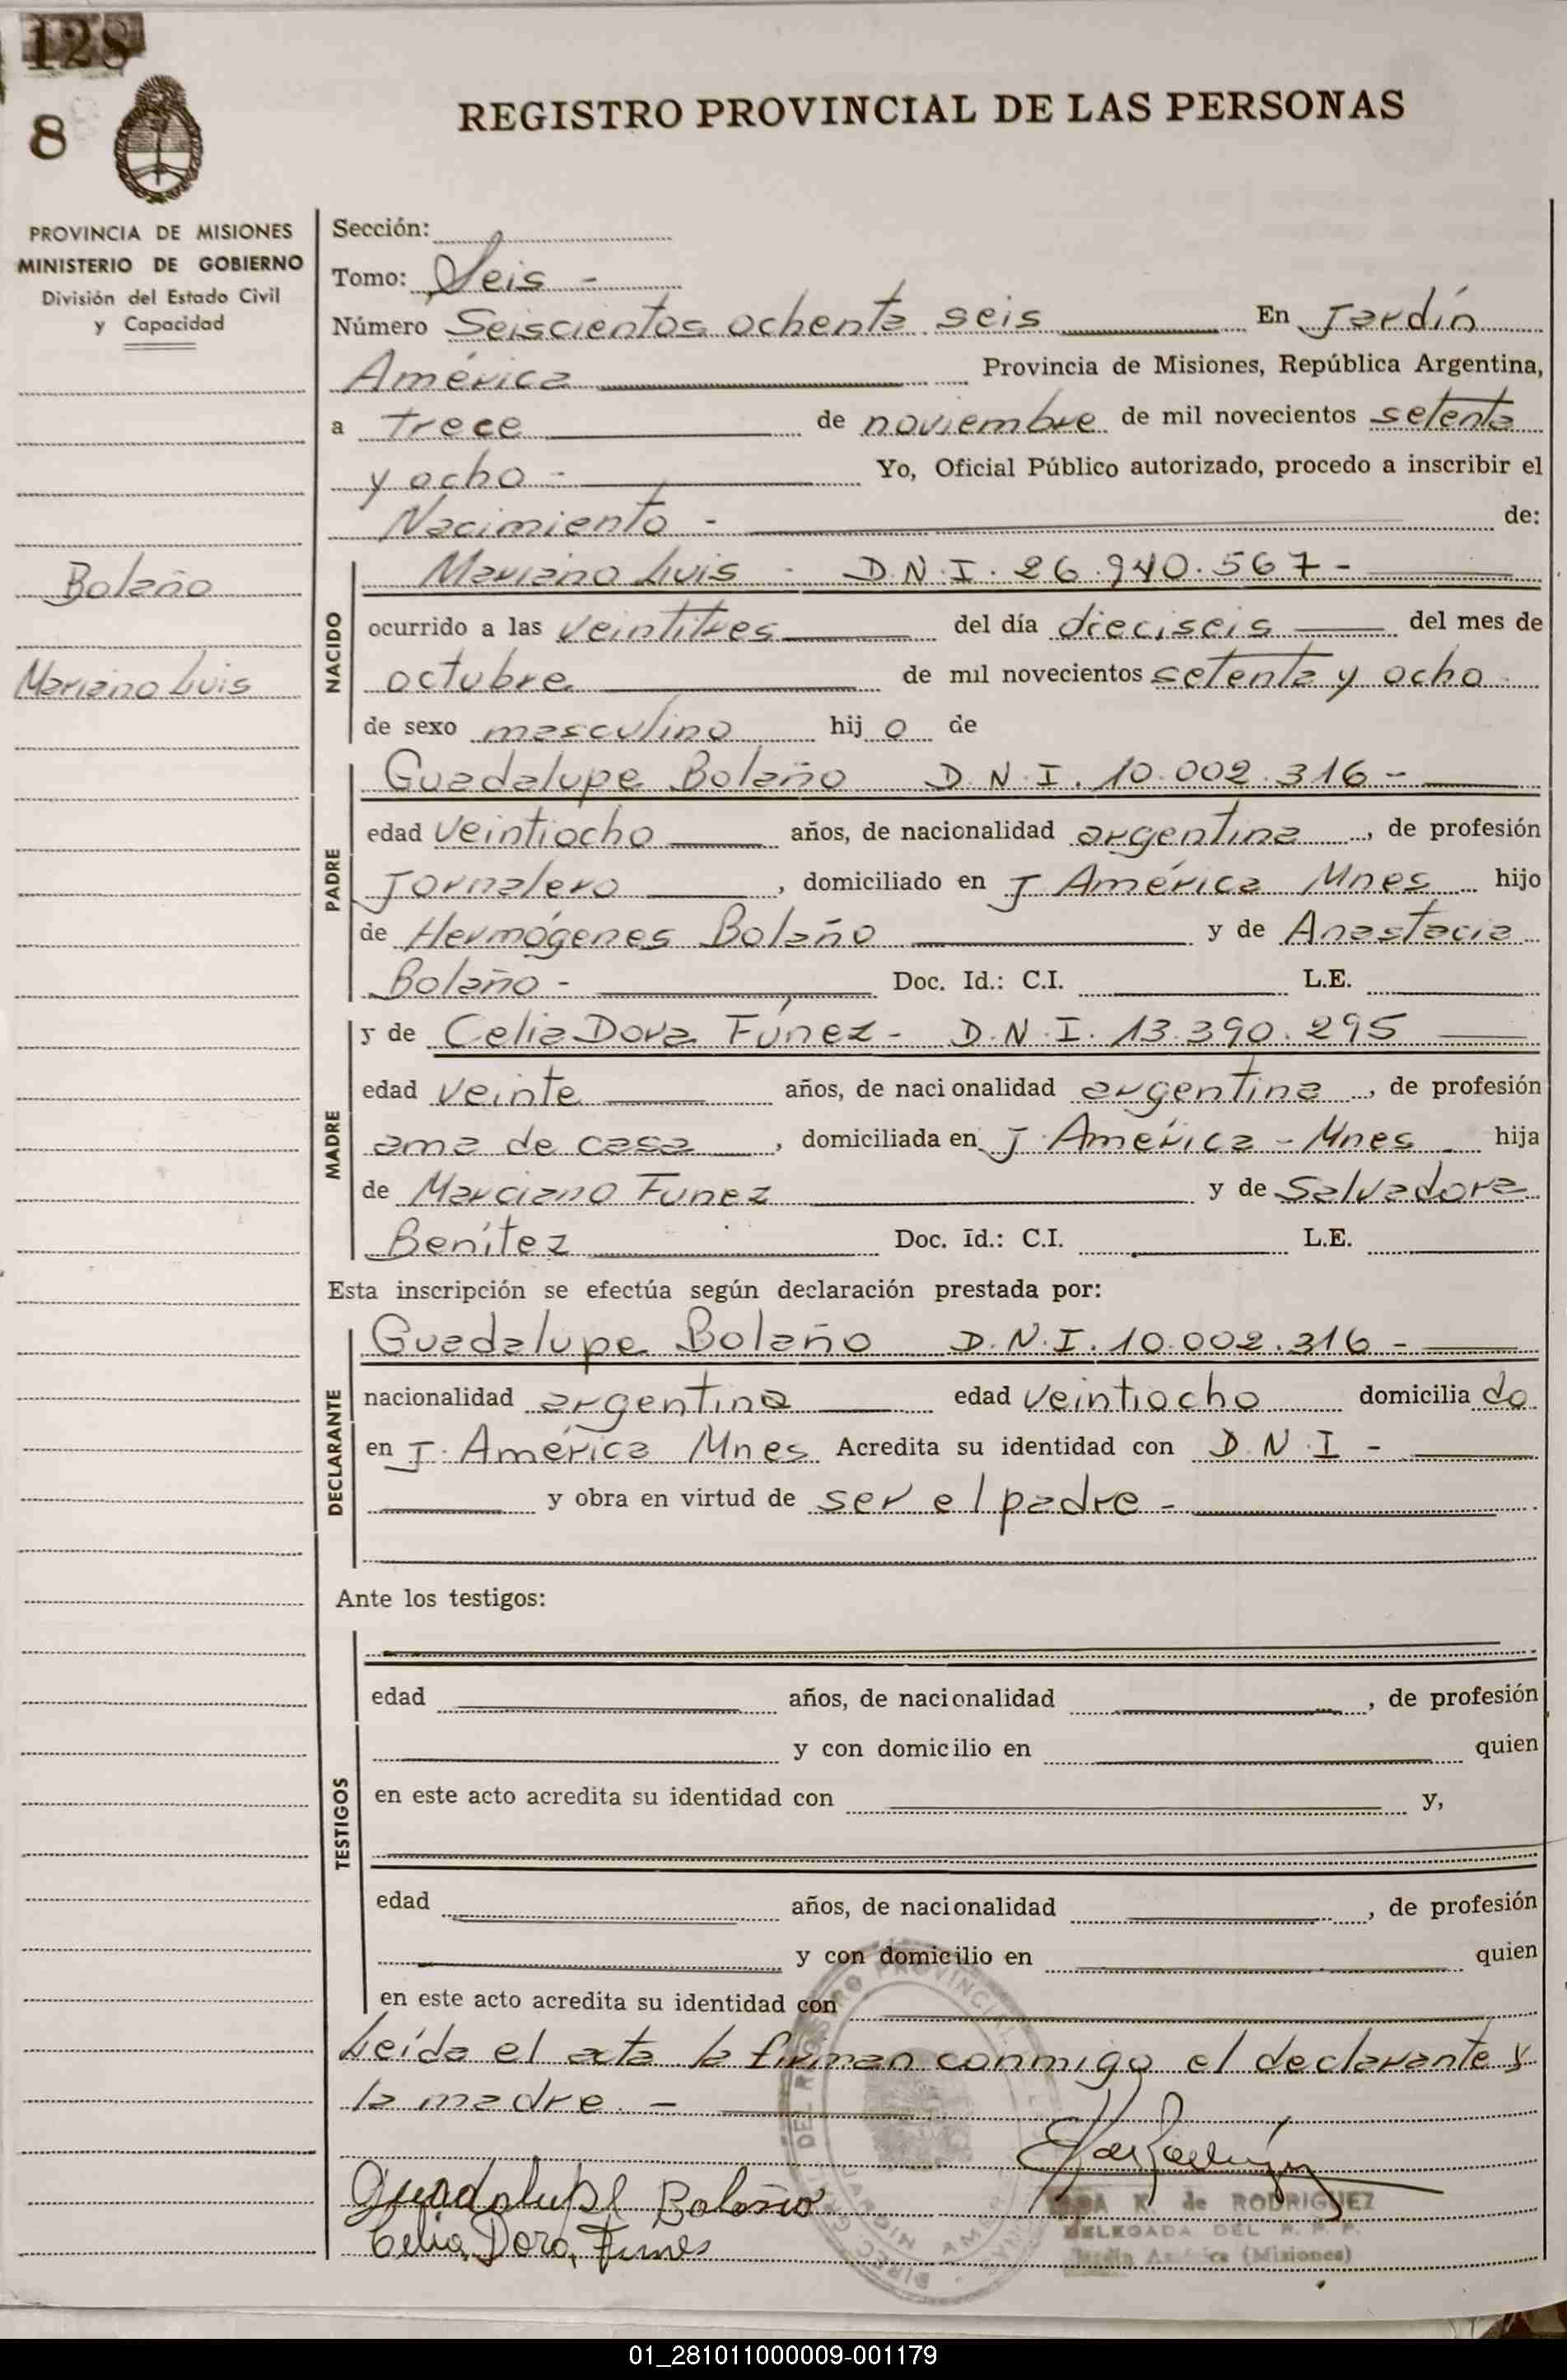 128
8
REGISTRO PROVINCIAL DE LAS PERSONAS
PROVINCIA DE MISIONES
MINISTERIO DE GOBIERNO
División del Estado Civil
y Capacidad
Bolaño
Mariano Luis
Sección:
Tomo: Seis -
Número Seiscientos ochenta seis En Jardín
América Provincia de Misiones, República Argentina,
a trece de noviembre de mil novecientos setenta
y ocho - Yo, Oficial Público autorizado, procedo a inscribir el
Nacimiento - de:
NACIDO
Mariano Luis - D.N.I. 26.940.567 -
ocurrido a las veintitres del día dieciseis del mes de
octubre de mil novecientos setenta y ocho
de sexo masculino hij o de
PADRE
Guadalupe Bolaño D.N.I. 10.002.316 -
edad veintiocho años, de nacionalidad argentina, de profesión
Jornalero, domiciliado en J América Mnes hijo
de Hermógenes Bolaño y de Anastacia
Bolaño - Doc. Id.: C.I. L.E.
MADRE
y de Celia Dora Fúnez - D.N.I. 13.390.295
edad veinte años, de nacionalidad argentina, de profesión
ama de casa, domiciliada en J. América - Mnes hija
de Marciano Funez y de Salvadora
Benítez Doc. Id.: C.I. L.E.
Esta inscripción se efectúa según declaración prestada por:
DECLARANTE
Guadalupe Bolaño D.N.I. 10.002.316 -
nacionalidad argentina edad veintiocho domicilia do
en J. América Mnes Acredita su identidad con D.N.I -
y obra en virtud de ser el padre -
Ante los testigos:
TESTIGOS
edad años, de nacionalidad , de profesión
y con domicilio en quien
en este acto acredita su identidad con y,
edad años, de nacionalidad , de profesión
y con domicilio en quien
en este acto acredita su identidad con
Leída el acta la firman conmigo el declarante y
la madre. -
Guadalupe Bolaño
Celia Dora Funes
K. de RODRIGUEZ
DELEGADA DEL R. P. P.
Jardín América (Misiones)
01_281011000009-001179